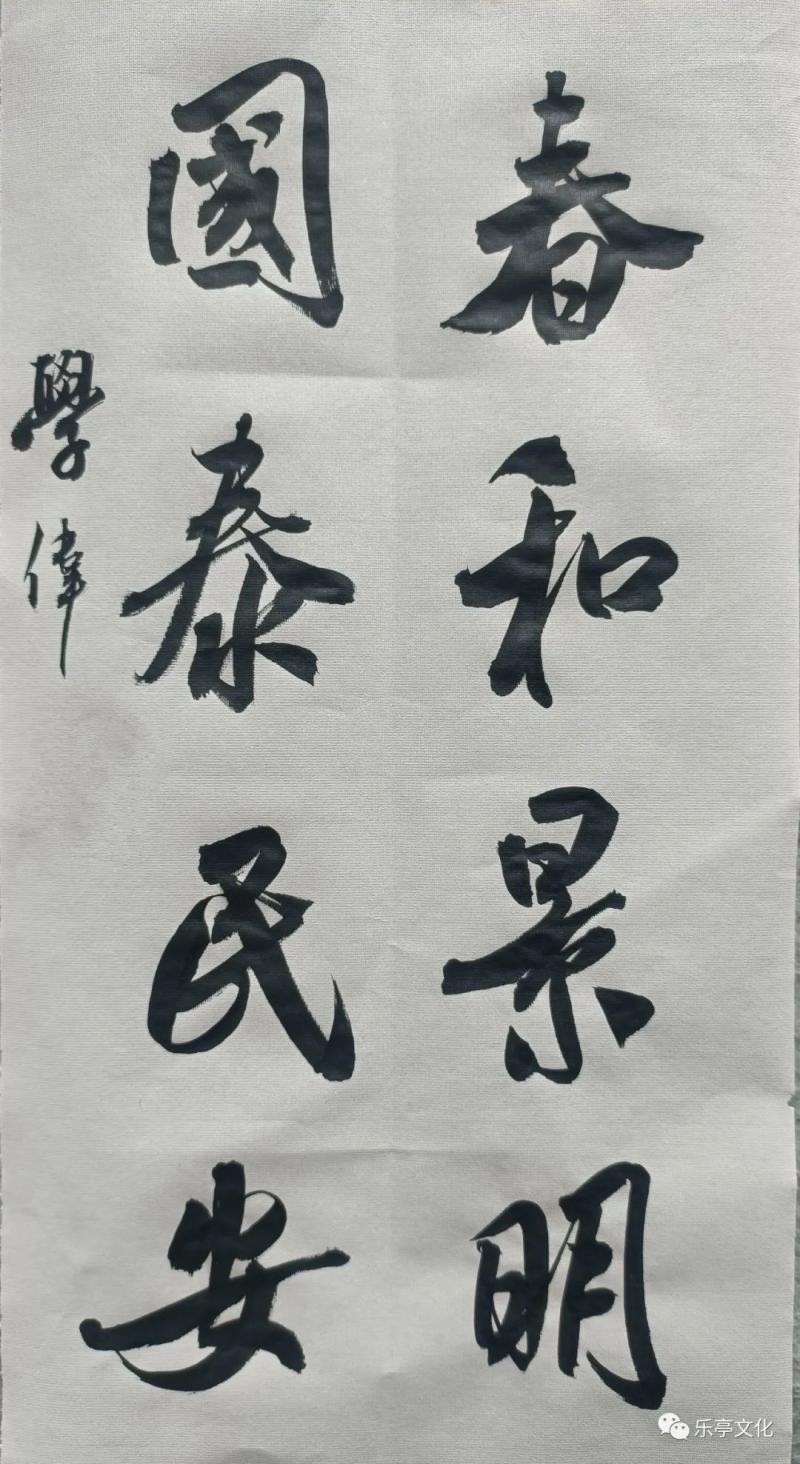 春和景明
國泰民安
學偉
乐亭文化